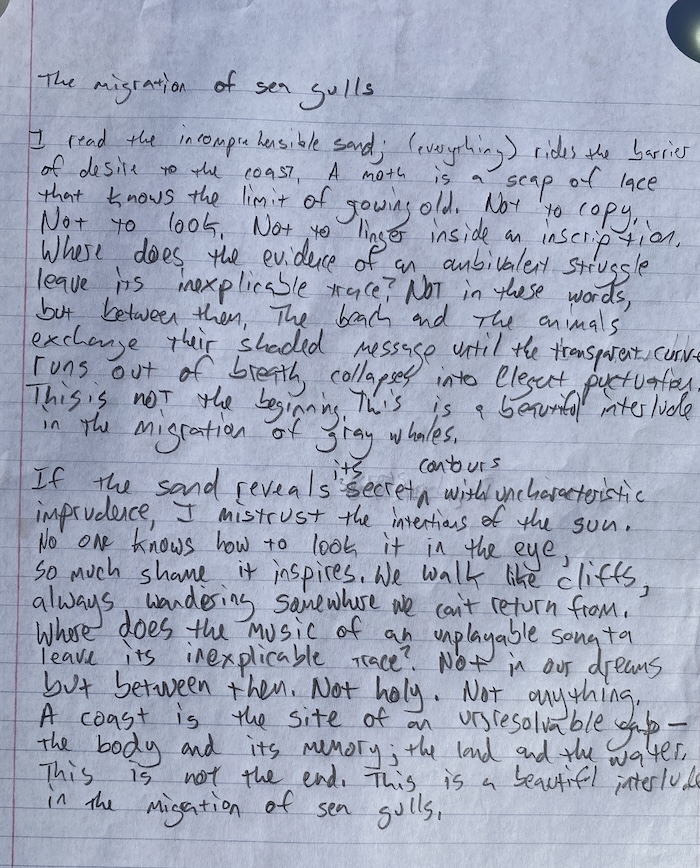 The migration of sea gulls
I read the incomprehensible sand; (everything) rides the barrier
of desire to the coast. A moth is a scap of lace
that knows the limit of gowing old. Not to copy.
Not to look. Not to linger inside an inscription.
Where does the evidence of an ambivalent struggle
leave its inexplicable trace? Not in these words,
but between then. The beach and the animals
exchange their shaded message until the transparent curve
runs out of breath, collapses into elegant puctuation.
This is not the beginning. This is a beautiful interlude
in the migration of gray whales.
its contours
If the sand reveals secret, with uncharacteristic
imprudence, I mistrust the intentions of the sun.
No one knows how to look it in the eye,
so much shame it inspires. We walk like cliffs,
always wandering somewhere we can't return from.
Where does the music of an unplayable sonata
leave its inexplicable trace? Not in our dreams
but between then. Not holy. Not anything.
A coast is the site of an unresolvable gap —
the body and its memory; the land and the water.
This is not the end. This is a beautifl interlude
in the migration of sea gulls.